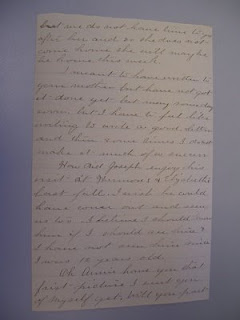 but we do not have time to go
after her and so she does not
come home she will maybe
be home this week.
I meant to have written to
your mother but have not got
it done yet but may someday
soon but I have to feel like
writing to write a good letter
and then some times I dont
make it much of a success.
How did Joseph enjoy his
visit at Vernons & Elizabeths
last fall. I wish he could
have come out and seen
us too. I believe I should know
him if I should see him &
I have not seen him since
I was 12 years old.
Oh Annie have you that
picture I sent you
of myself yet. Will you